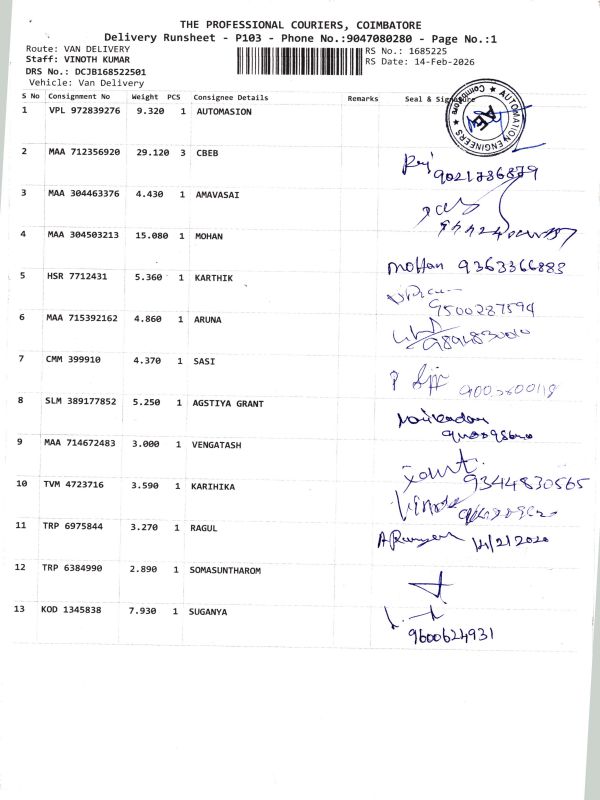 THE PROFESSIONAL COURIERS, COIMBATORE
Delivery Runsheet - P103 - Phone No.:9047080280 - Page No.:1
Route: VAN DELIVERY RS No.: 1685225
Staff: VINOTH KUMAR RS Date: 14-Feb-2026
DRS No.: DCJB168522501
Vehicle: Van Delivery
S No Consignment No Weight PCS Consignee Details Remarks Seal & Signature
1 VPL 972839276 9.320 1 AUTOMASION
AUTOMATION ENGINEERS Coimbatore AE
2 MAA 712356920 29.120 3 CBEB
Raj
9021786879
3 MAA 304463376 4.430 1 AMAVASAI
4 MAA 304503213 15.080 1 MOHAN
Mohan 9363366883
5 HSR 7712431 5.360 1 KARTHIK
9500287594
6 MAA 715392162 4.860 1 ARUNA
7 CMM 399910 4.370 1 SASI
8 SLM 389177852 5.250 1 AGSTIYA GRANT
9 MAA 714672483 3.000 1 VENGATASH
9344830565
10 TVM 4723716 3.590 1 KARIHIKA
11 TRP 6975844 3.270 1 RAGUL
12 TRP 6384990 2.890 1 SOMASUNTHAROM
13 KOD 1345838 7.930 1 SUGANYA
9600624931